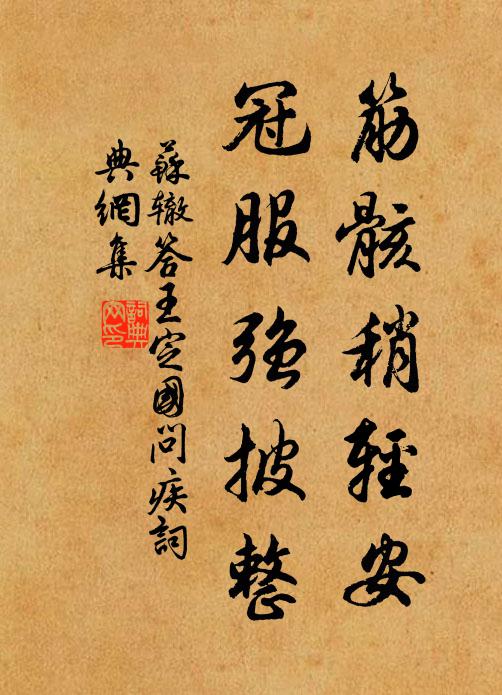 筋骸稍輕安
冠服強披整
蘇辙答王定國問疾詞
典網集
詞典
网印